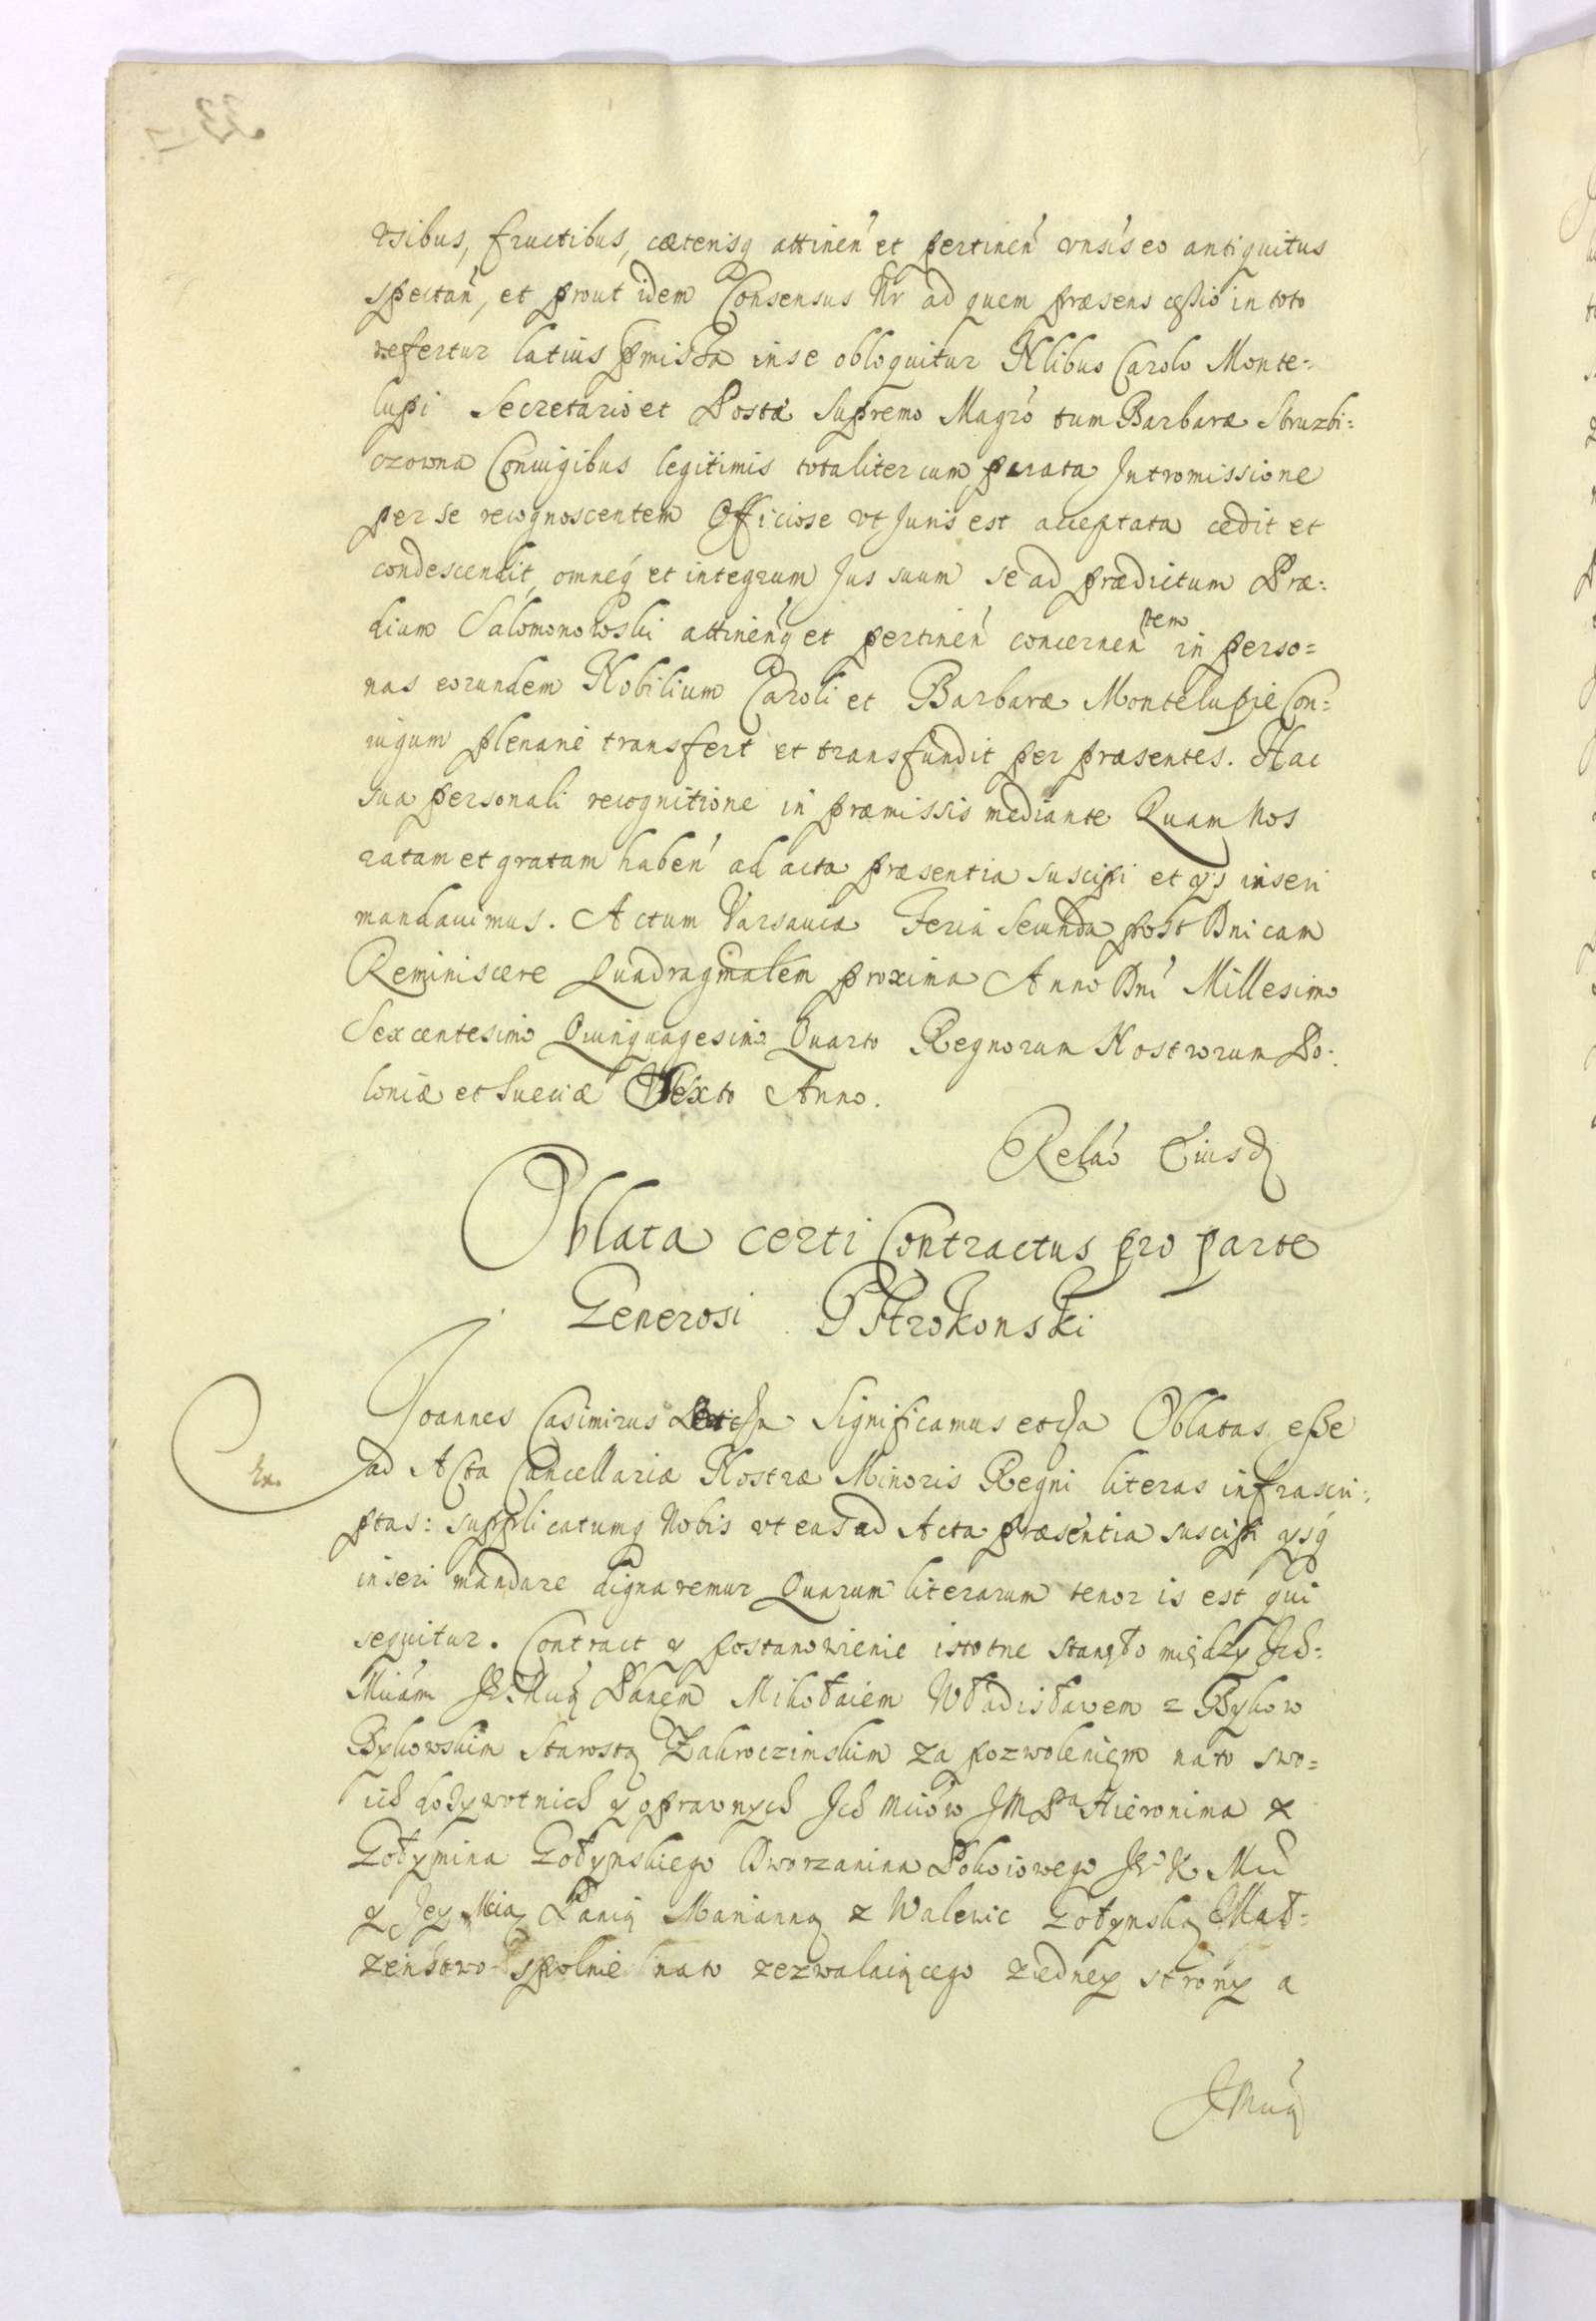 vsibus, fructibus, cæterisq attineñ et pertineñ vnsis eo antiquitus
spectañ, et prout idem Consensus Nr ad quem præsens cessio in toto
refertur latius pmissa in se obloquitur Nlibus Carolo Monte=
lupi Secretario et Postæ Supremo Magro tum Barbaræ Struzbi=
czowna Coniugibus legitimis totaliter cum parata Intromissione
per se recognoscentem Officiose vt Juris est acceptata cedit et
condescendit, omneq et integrum Jus suum se ad prædictum Præ=
dium Salomonowski attineñq et pertineñ concerneñtem in perso=
nas eorundem Nobilium Caroli et Barbaræ Montelupie Con=
iugum plenarie transfert et transfundit per præsentes. Hac
sua personali recognitione in præmissis mediante Quam Nos
ratam et gratam habeñ ad acta præsentia suscipi et ys inseri
mandauimus. Actum Varsauiæ Feria Secunda post Dnicam
Reminiscere Quadragmalem proxima Anno Dni Millesimo
Sexcentesimo Quinquagesimo Quarto Regnorum Nostrorum Po=
loniæ et Sueciæ Sexto Anno.
Relaó Eiusd
Oblata certi Contractus pro parte
Generosi Pstrokonski
Joannes Casimirus Significamus etcha Oblatas esse
ad Acta Cancellariæ Nostræ Minoris Regni literas infrascri=
ptas: supplicatumq Nobis vt eas ad Acta præsentia suscipi ysq
inseri mandare dignaremur Quarum literarum tenor is est qui
sequitur. Contract y postanowienie istotne stanęło między Ich=
Mciam Je Mcią Panem Mikołaiem Władisławem z Bykow
Bykowskim Starostą Zakroczimskim za pozwolenięm na to swo=
ich dożywotnich y oprawnych Ich Mciów JMPa Hieronima z
Gołymina Gołynskiego Dworzanina Pokoiowego Je K Mci
y Jey Mcią Panią Marianną z Walewic Gołynską Mał=
żeństwo spolnie na to zezwalaiącego z iedney strony a
JMcią